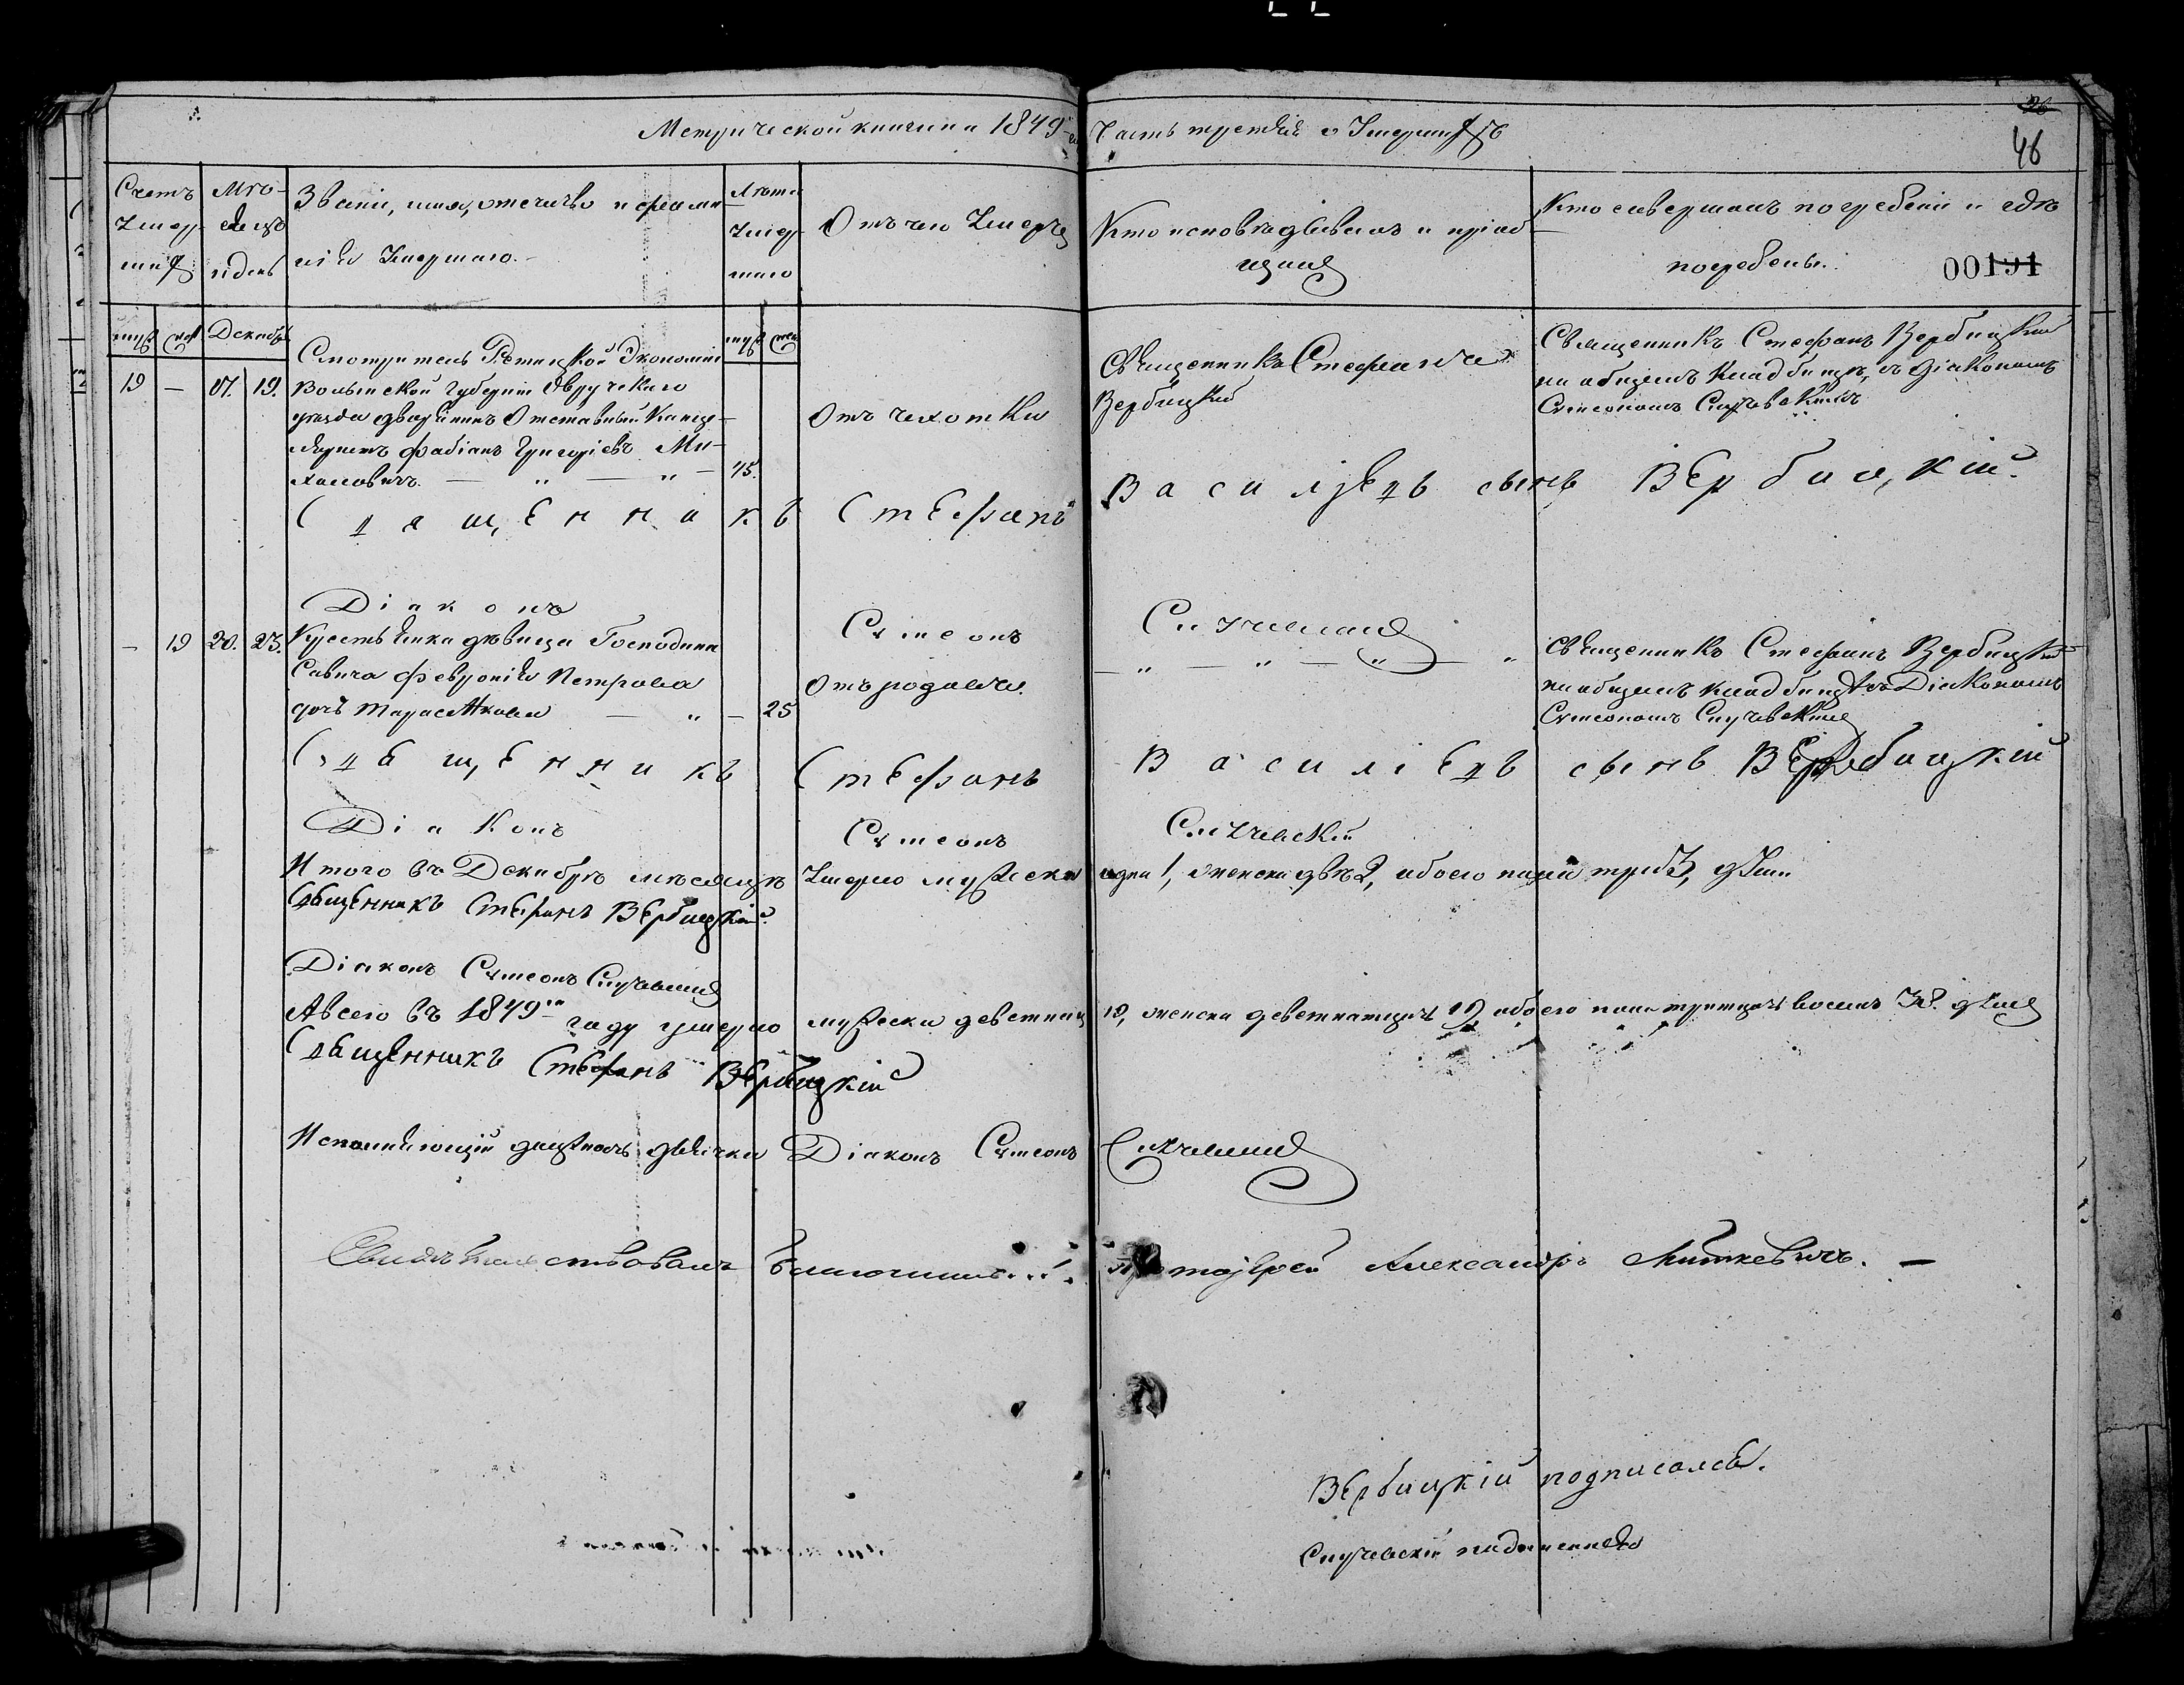 Метрической книги на 1849 Часть третія о Умершихъ
26
46
Счетъ Умершихъ
Мѣсяцъ и день
Званіе, имя, отечество и фамилія Умершаго.
Лѣта Умершаго
Отъ чего Умеръ
Кто исповѣдывалъ и пріобщалъ
Кто совершалъ погребеніе и гдѣ погребены.
00191
муж
жен
Декабрь
муж
жен
19 — 17. 19.
Смотритель Экономіи
Волынской Губерніи Овручскаго
уѣзда дворянинъ Отставный Канце-
ляристъ Фабіанъ Григоріевъ Ми-
халовичъ. — „ — „ — 45.
Отъ чехотки
Священникъ Стефанъ
Вербицкій
Священникъ Стефанъ Вербицкій
на общемъ кладбищѣ, съ Діакономъ
Сѵмеономъ
Священникъ Стефанъ Васильевъ сынъ Вербицкій
Діаконъ Сѵмеонъ
— 19 20. 23.
Крестьянка дѣвица Господина
Савича Февронія Петрова
дочь Тарасенкова — „ — 25
Отъ родовъ.
— „ — „ — „ — „
Священникъ Стефанъ Вербицкій
на общемъ кладбищѣ съ Діакономъ
Сѵмеономъ
Священникъ Стефанъ Василіевъ сынъ Вербицкій
Діаконъ Сѵмеонъ
Итого въ Декабрѣ мѣсяцѣ Умерло мужеска одна 1, женска двѣ 2, обоего пола три 3, души
Священникъ Стефанъ Вербицкій
Діаконъ Сѵмеонъ
А всего въ 1849 году умерло мужеска девятнад 19, женска девятнадцать 19 обоего пола тритцать восемъ 38. душъ
Священникъ Стефанъ Вербицкій
Исполняющій должность дьячка Діаконъ Сѵмеонъ
Свидѣтельствовалъ Благочинный Протоіерей Александръ Миткевичъ. —
Вербицкій подписалсь.
подписался